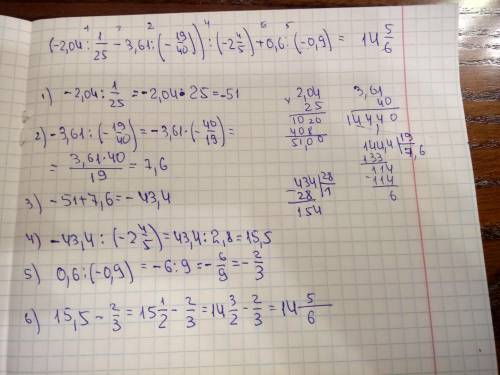 1 3 2 4 6 5
(-2,04 : 1/25 - 3,61 : (-19/40)) : (-2 4/5) + 0,6 : (-0,9) = 14 5/6
1) -2,04 : 1/25 = -2,04 · 25 = -51
2) -3,61 : (-19/40) = -3,61 · (-40/19) =
= 3,61·40/19 = 7,6
3) -51+7,6 = -43,4
4) -43,4 : (-2 4/5) = 43,4 : 2,8 = 15,5
5) 0,6 : (-0,9) = -6 : 9 = -6/9 = -2/3
6) 15,5 - 2/3 = 15 1/2 - 2/3 = 14 3/2 - 2/3 = 14 5/6
× 2,04
25
1020
408
51,00
3,61
40
14440
1444 | 19
133 | 7,6
114
-114
6
-434 | 28
28 | 1
154